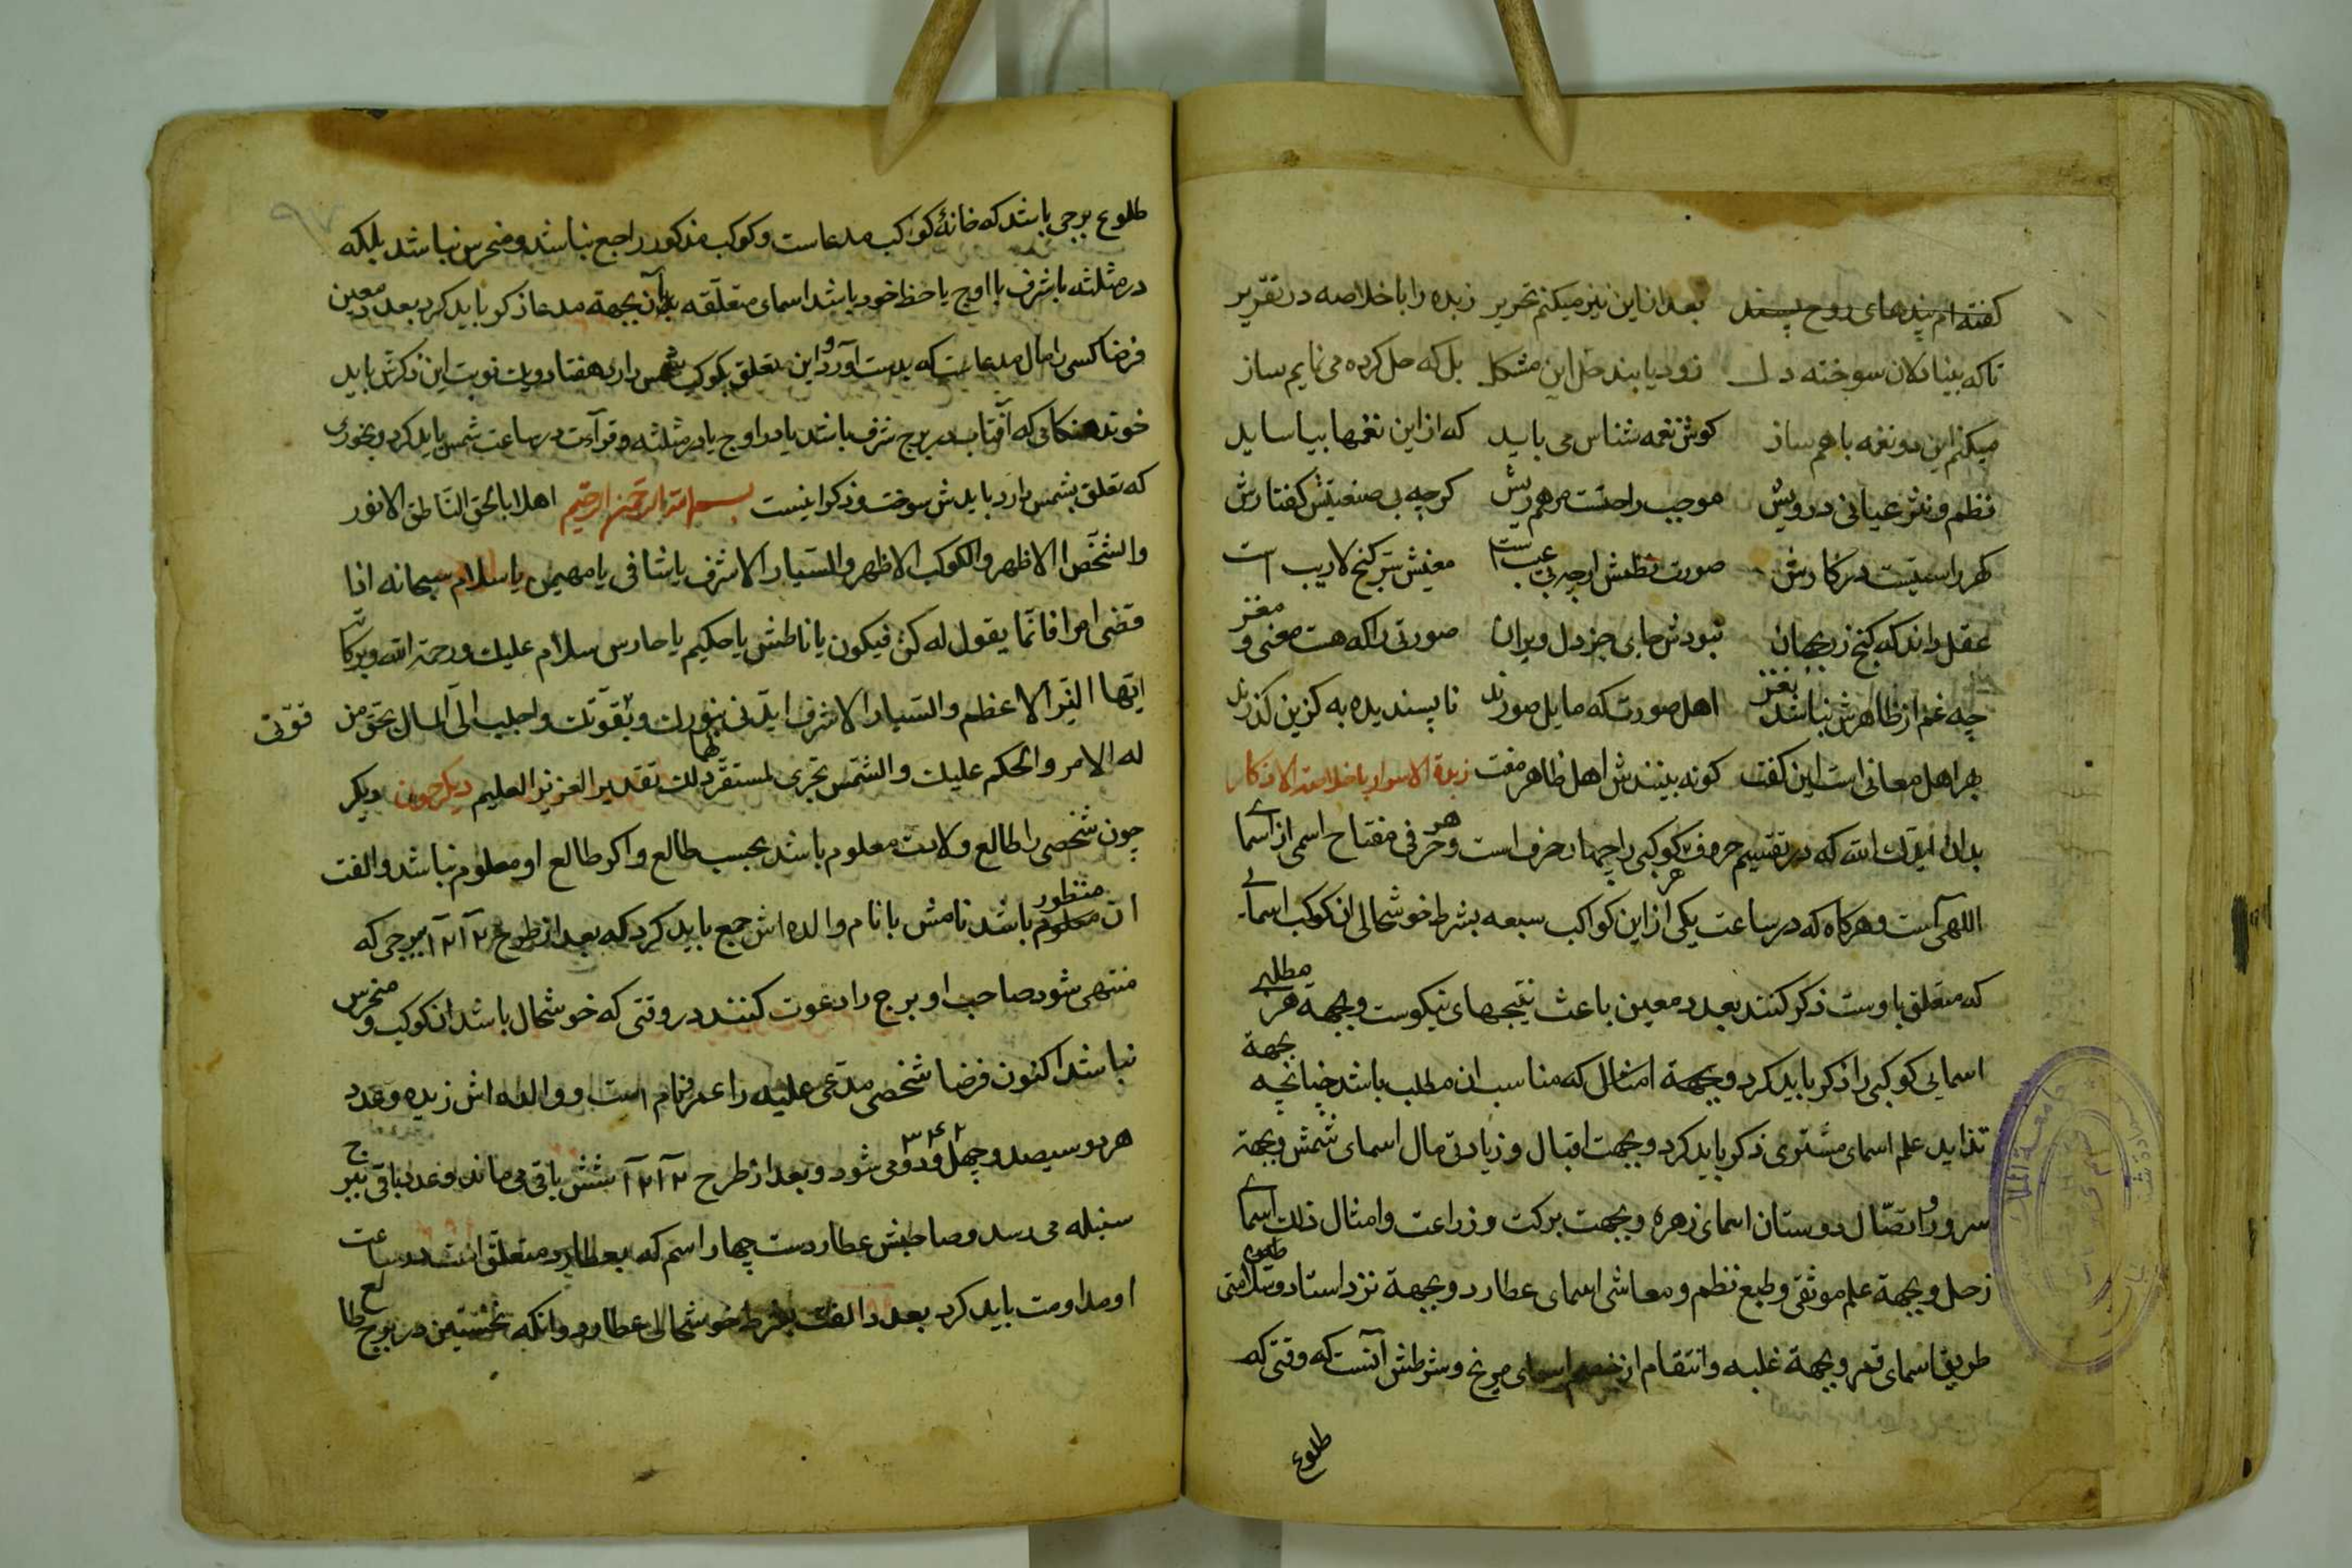 گفته‌ام پندهای روح پسند بعد ازین این نیز میکنم تحریر زبده را با خلاصه در تقریر
تا که بینا دلان سوخته دل زود یابند حل این مشکل بل که حل کرده می نمایم ساز
میکنم این دو نغمه با هم ساز کوش نغمه شناس می باید که از این نغمها بیاساید
نظم و نثر عیانی درویش موجب راحتست مرهم ریش کرچه بی صنعتیش کفتارش
کهر راستیست در کارش صورت نظمش ارچه بی عیب است معنیش سر کنج لاریب است
عقل داند که کنج زر بجهان نبودش جای جز دل ویران صورتی را که هست معنی و مغز
چه غم از ظاهرش نباشد نغز اهل صورت که مایل صورند ناپسندیده به کزین کذرند
بهر اهل معانی است این کفت کو نه بینندش اهل ظاهر مفت زبدة الاسرار با خلاصة الاذکار
بدان ایدک الله که در تقسیم حروف هر کوکبی را چهار حرف است و هر حرفی مفتاح اسمی از اسمای
اللهی است و هرکاه که در ساعت یکی از این کواکب سبعه بشرط خوشحالی ان کوکب اسمایی
که متعلق باوست ذکر کنند بعدد معین باعث نتیجهای نیکوست و بجهة هر مطلبی
اسمایی کوکبی را ذکر باید کرد و بجهة امثال که مناسب ان مطلب باشد چنانچه بجهة
تذاید علم اسمای مشتری ذکر باید کرد و بجهت اقبال و زیادتی مال اسمای شمش و بجهة
سرور و اتصال دوستان اسمای زهره و بجهت برکت و زراعت و امثال ذلک اسمای
زحل و بجهة علم موثقی و طبع نظم و معاشی اسمای عطارد و بجهة نزد استاد و سلامتی
طریق اسمای قمر و بجهة غلبه و انتقام از خصم اسمای مریخ و شرطش آنست که وقتی که
طلوع
طلوع برجی باشد که خانهٔ کواکب مدعاست و کوکب مذکور راجع نباشد و منحرس نباشد بلکه
در مثلثه با شرف با اوج یا حظ خود باشد اسمای متعلقه بآن بجهة مدعا ذکر باید کرد بعدد معین
فرضا کسی را مال مدعاست که بدست آورد و این متعلق بکوکب شمس دارد هفتاد و یک نوبت این ذکرش باید
خوند هنکامی که آفتاب در برج شرف باشد یا در اوج یا در مثلثه و قرآءت در ساعت شمس باید کرد و بخوری
که تعلق بشمس دارد بایدش سوخت و ذکر اینست بسم الله الرحمن الرحیم اهلا بالحق الناطق الانور
والشخص الاظهر والکوکب الاظهر والسیار الاشرف یا شافی یا مهیمن یا سلام سبحانه اذا
قضی امرا فانما یقول له کن فیکون یا ناطش یا حکیم یا حارس سلام علیک ورحمة الله وبرکاته
ایتها النیر الاعظم والسیار الاشرف ایدنی بنورک وبقوتک واجلب الی المال بحق من
قوتی
له الامر والحکم علیک والشمس تجری لمستقر لها ذلک تقدیر العزیز العلیم دیکر چون دیکر
چون شخصی را طالع ولادت معلوم باشد بحسب طالع و اکر طالع او معلوم نباشد و الفت
ان معلوم منظور باشد نامش با نام والده اش جمع باید کرد که بعد از طرح ۱۲ ۱۲ ببرجی که
منتهی شود صاحب او برج را دعوت کنند در وقتی که خوشحال باشد ان کوکب و منحرس
نباشد اکنون فرضا شخصی مدعی علیه را عمر نام است و والده اش زبده و عدد
هر دو سیصد و چهل و دو ۳۴۲ می شود و بعد از طرح ۱۲ ۱۲ شش باقی می ماند و عدد باقی ببرج
سنبله می رسد و صاحبش عطاردست چهار اسم که بعطارد متعلق است در ساعت
او مداومت باید کرد بعدد الفت بشرط خوشحالی عطارد و انکه نخستین در برج طالع